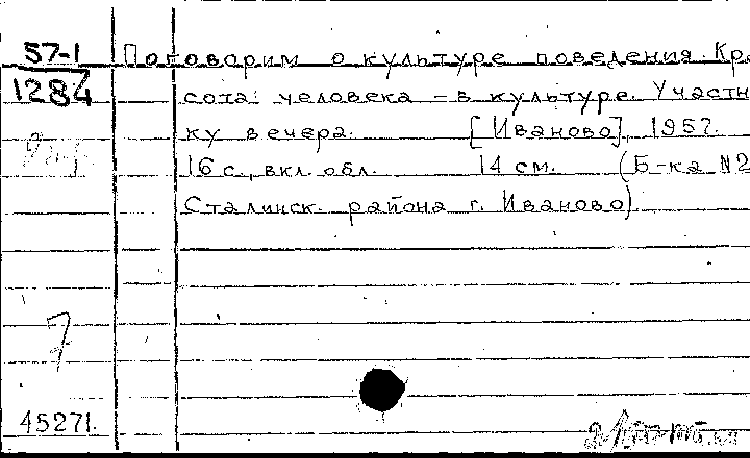 57-1
1284
Поговорим о культуре поведения. Кра
сота человека – в культуре. Участн
ку вечера. [Иваново], 1957.
16 с., вкл. обл. 14 см. (Б-ка N2
Сталинск. района г. Иваново).
7
45271.